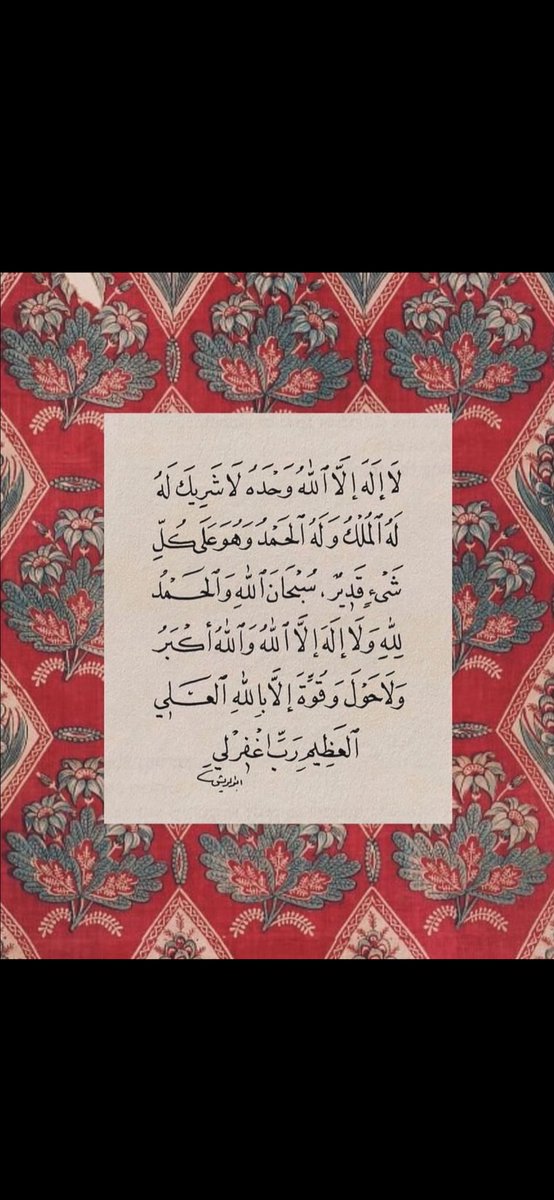 لَا إِلَهَ إِلَّا ٱللهُ وَحْدَهُ لَا شَرِيكَ لَهُ
لَهُ ٱلْمُلْكُ وَلَهُ ٱلْحَمْدُ وَهُوَ عَلَى كُلِّ
شَيْءٍ قَدِيرٌ، سُبْحَانَ ٱللهِ وَٱلْحَمْدُ
لِلهِ وَلَا إِلَهَ إِلَّا ٱللهُ وَٱللهُ أَكْبَرُ
وَلَا حَوْلَ وَقُوَّةَ إِلَّا بِاللهِ ٱلْعَلِي
ٱلْعَظِيمِ رَبِّ اغْفِرْ لِي